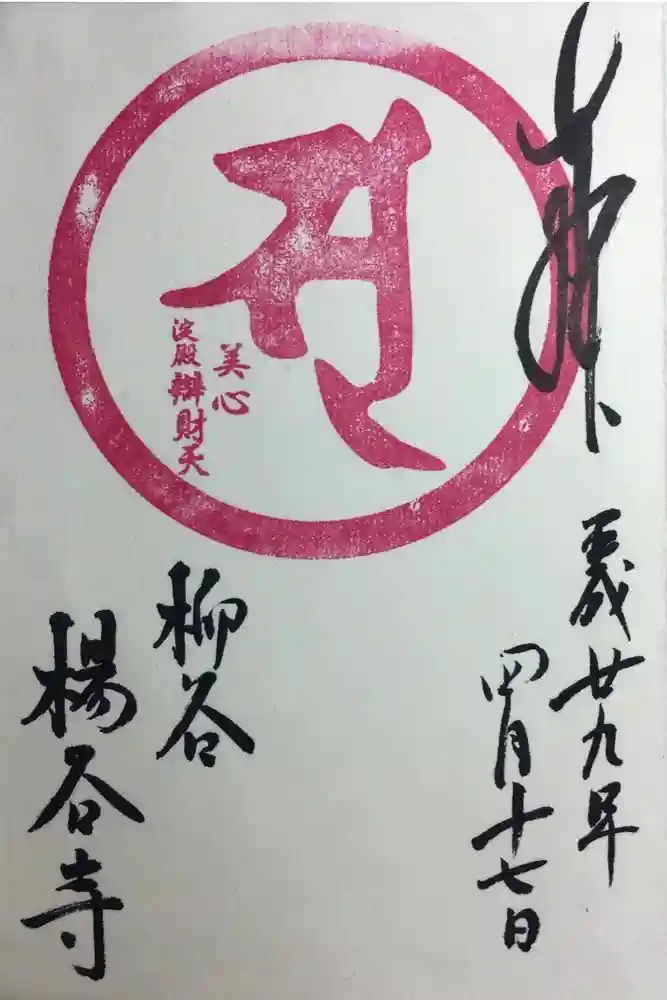 奉拝
平成廿九年
四月十七日
美心
淀殿辯財天
柳谷
楊谷寺